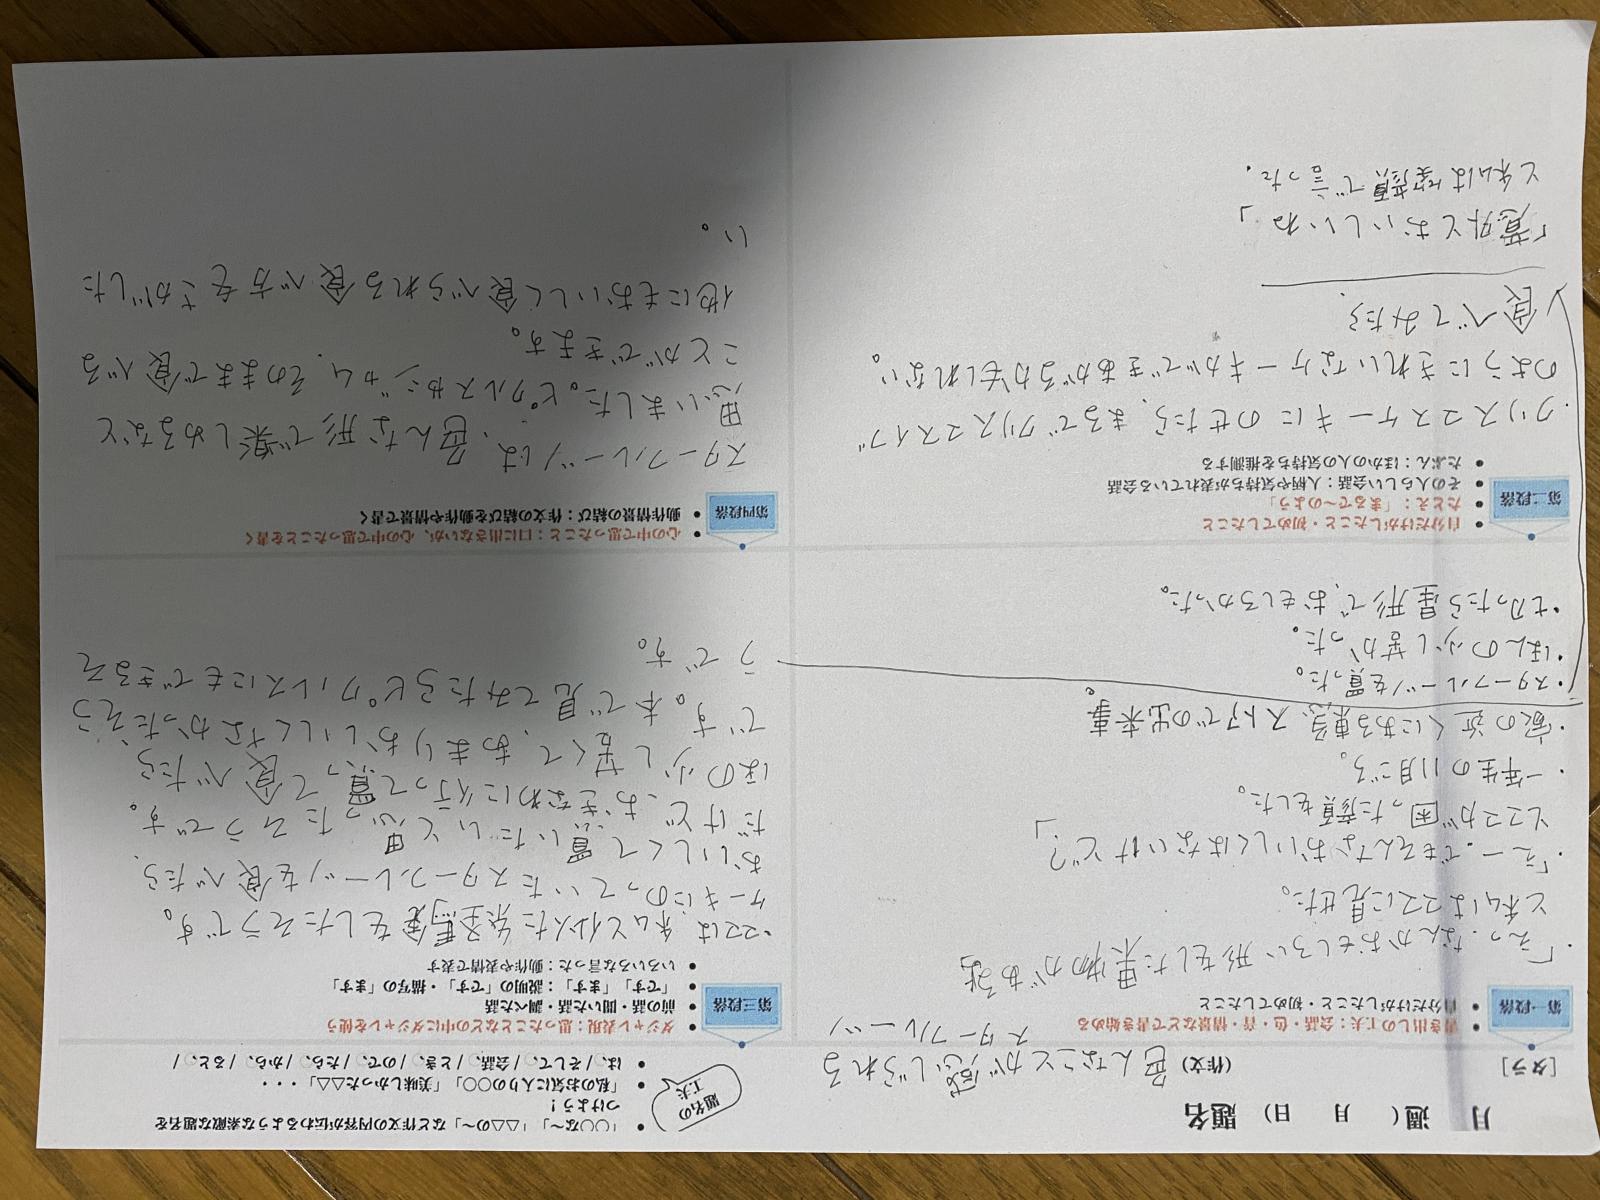 月　週（　月　日）　題名
[タラ]　（作文）　色んなことが感じられる
スターフルーツ
題名の工夫
• 「○○な〜」「△△の〜」など作文の内容が伝わるような素敵な題名を
つけよう！
• 「私のお気に入りの○○」「美味しかった△△」・・・
• は、/ そして、/ 会話、/ とき、/ ので、/ たら、/ から、/ ると、/
第一段落
• 書き出しの工夫：会話・色・音・情景などで書き始める
• 自分だけがしたこと・初めてしたこと
・「えっ、なんかおもしろい形をした果物がある
と私はママに見せた。
・「えー、でもそんなおいしくはないけど？」
とママが困った顔をした。
・一年生の11月ごろ。
・家の近くにある東急ストアでの出来事。
・スターフルーツを買った。
・ほんの少し苦かった。
・切ったら星形で、おもしろかった。
第二段落
• 自分だけがしたこと・初めてしたこと
• たとえ：「まるで〜のよう」
• その人らしい会話：人柄や気持ちが表れている会話
• たぶん：ほかの人の気持ちを推測する
・クリスマスケーキにのせたら、まるでクリスマスイブ
のようにきれいなケーキができあがるかもしれない。
食べてみたら、
「意外とおいしいね」
と私は笑顔で言った。
第三段落
• ダジャレ表現：思ったことなどの中にダジャレを使う
• 前の話・聞いた話・調べた話
• 「です」「ます」：説明の「です」・描写の「ます」
• いろいろな言った：動作や表情で表す
・ママは、私と似た経験をしたそうです。
ケーキにのっていたスターフルーツを食べたら、
おいしくて買いたいと思ったそうです。
だけど、おきなわに行って買って食べたら
ほの少し苦くて、あまりおいしくなかったそう
です。本で見てみたらピクルスにもできるそ
うです。
第四段落
• 心の中で思ったこと：口に出さないが、心の中で思ったことを書く
• 動作情景の結び：作文の結びを動作や情景で書く
スターフルーツは、色んな形で楽しめるなと
思いました。ピクルスやジャム、そのままで食べる
ことができます。
他にもおいしく食べられる食べ方をさがした
い。